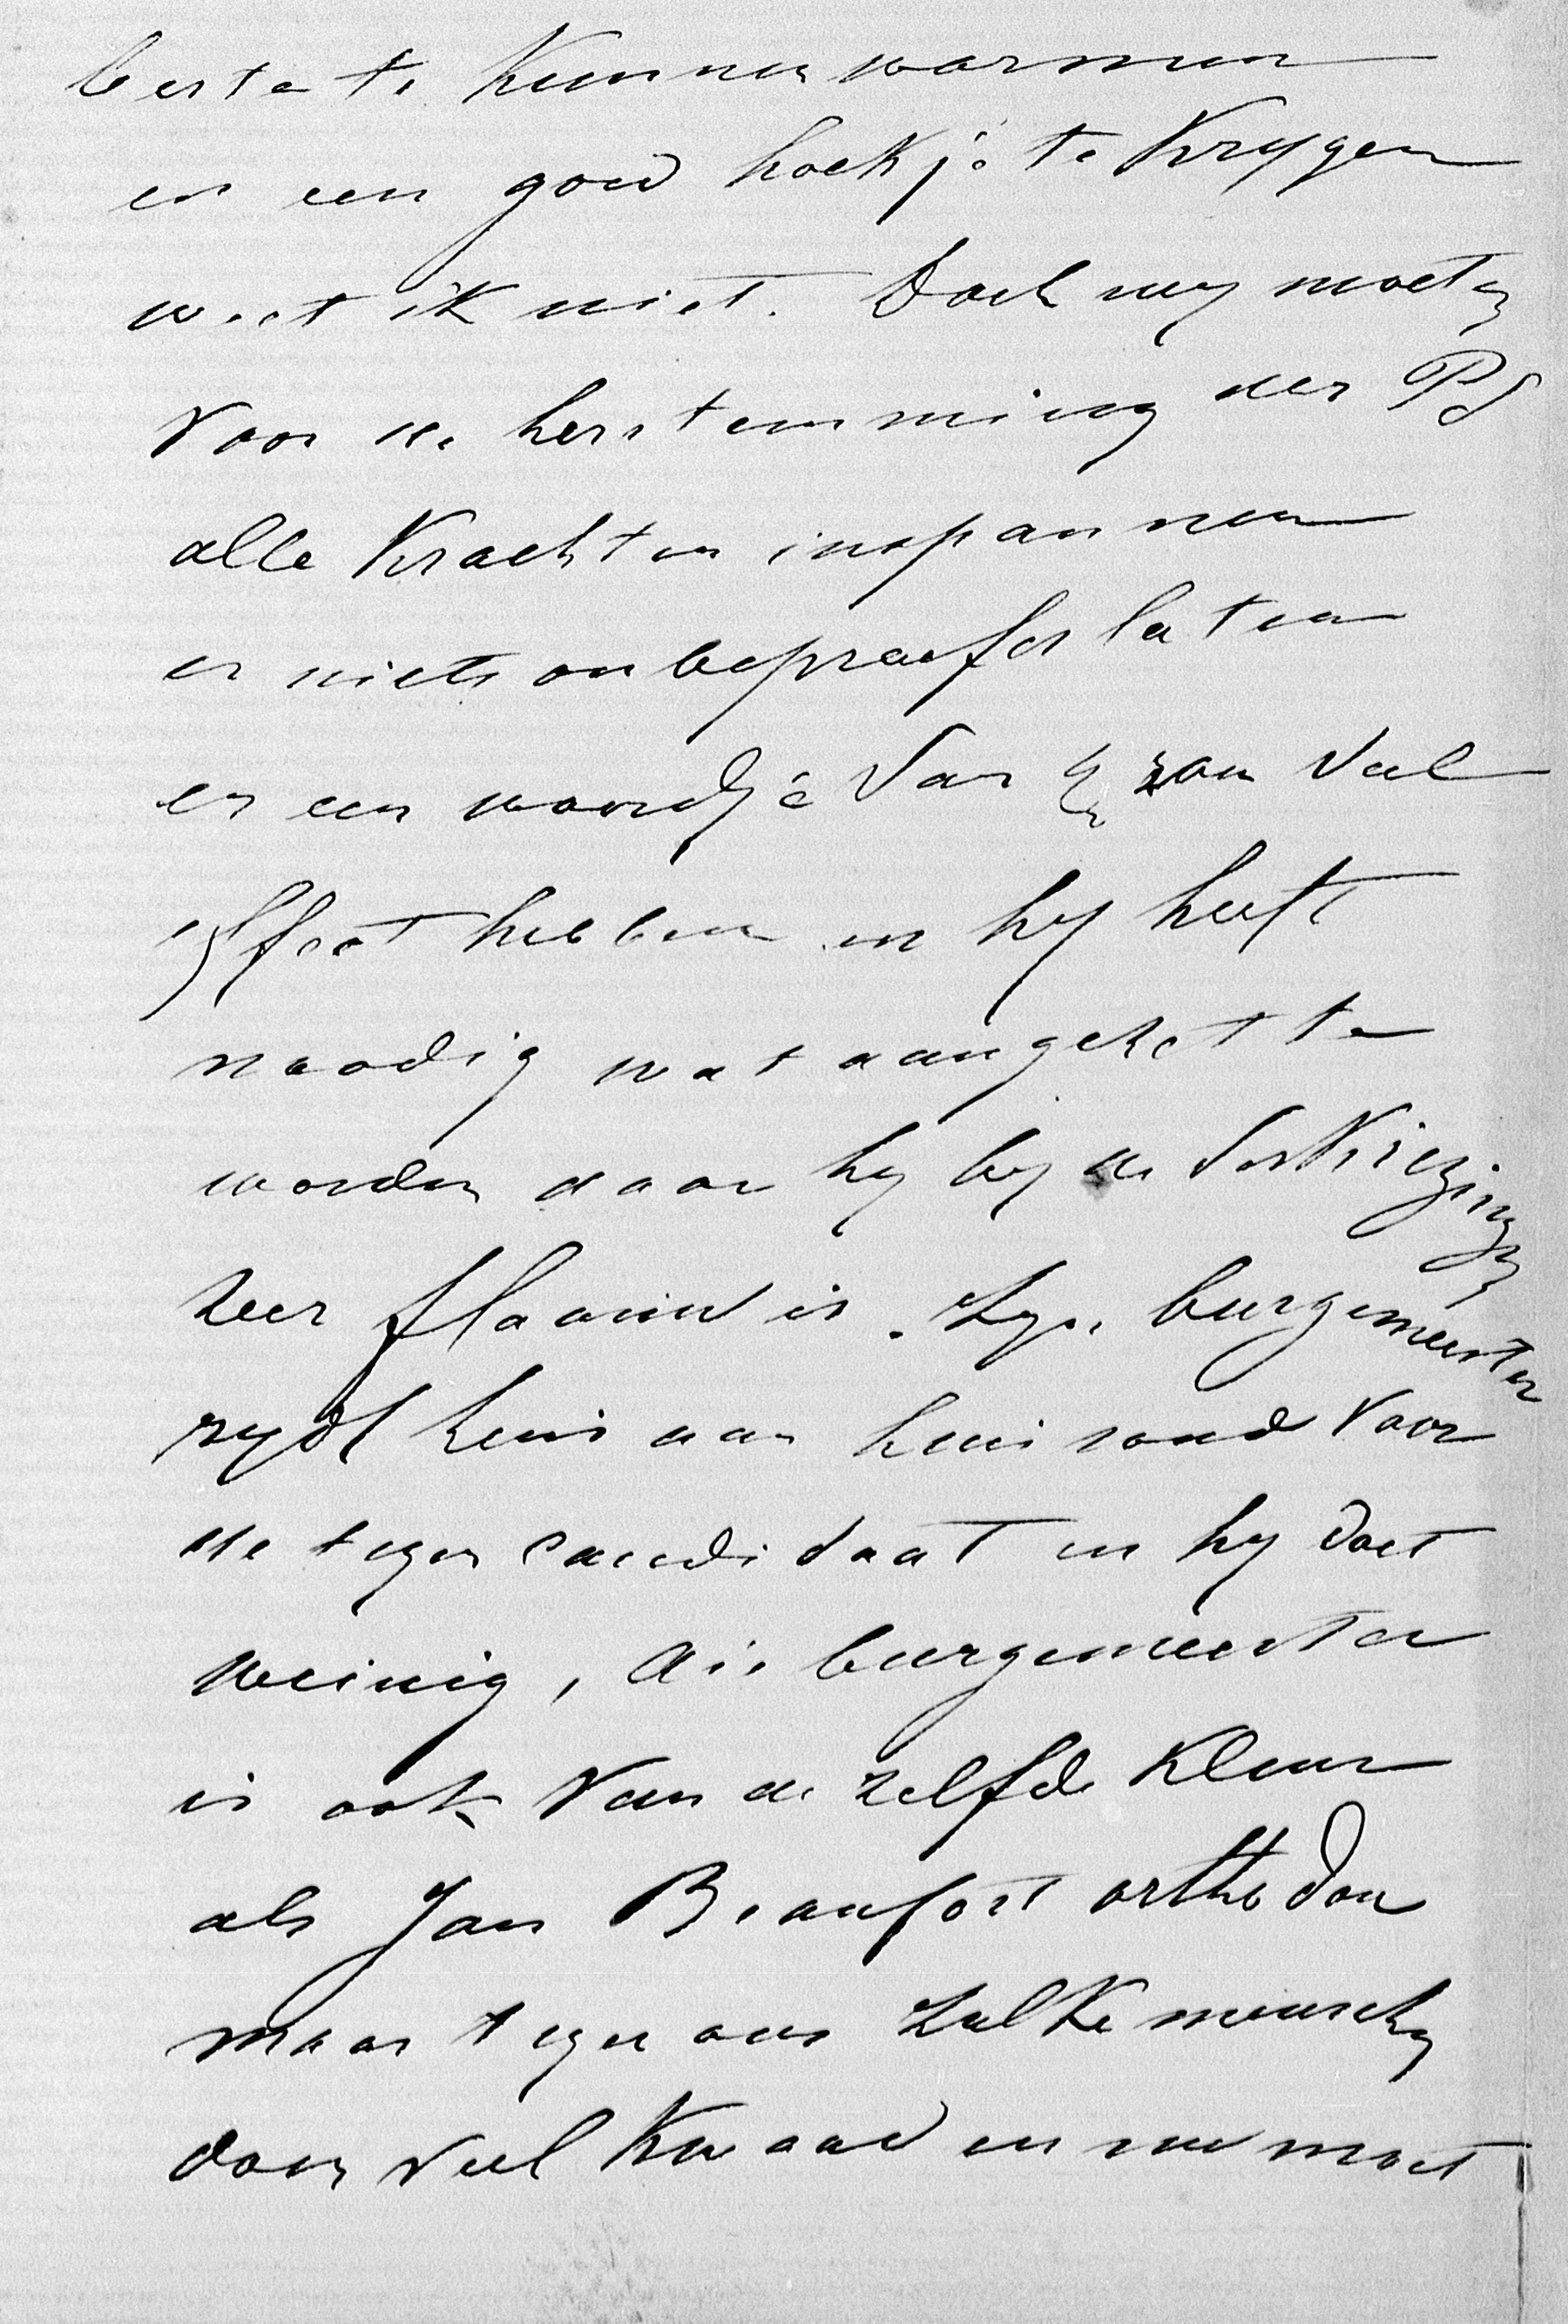 beste te kunnen warmen
en een goed hoekje te krijgen
weet ik niet. Doch wij moeten
voor de herstemming der PS
alle krachten inspannen
en niets onbeproefd laten
en een woordje van U zou veel
effect hebben en hij heeft
noodig wat aangezet te
worden daar hij bij de verkiezingen
zeer flaauw is. Zijn burgemeester
rijdt huis aan huis rond voor
de tegencandidaat en hij doet
weinig, die burgemeester
is ook van de zelfde kleur
als Jan Beaufort orthodox
maar tegen ons zulke menschen
doen veel kwaad en nu moet